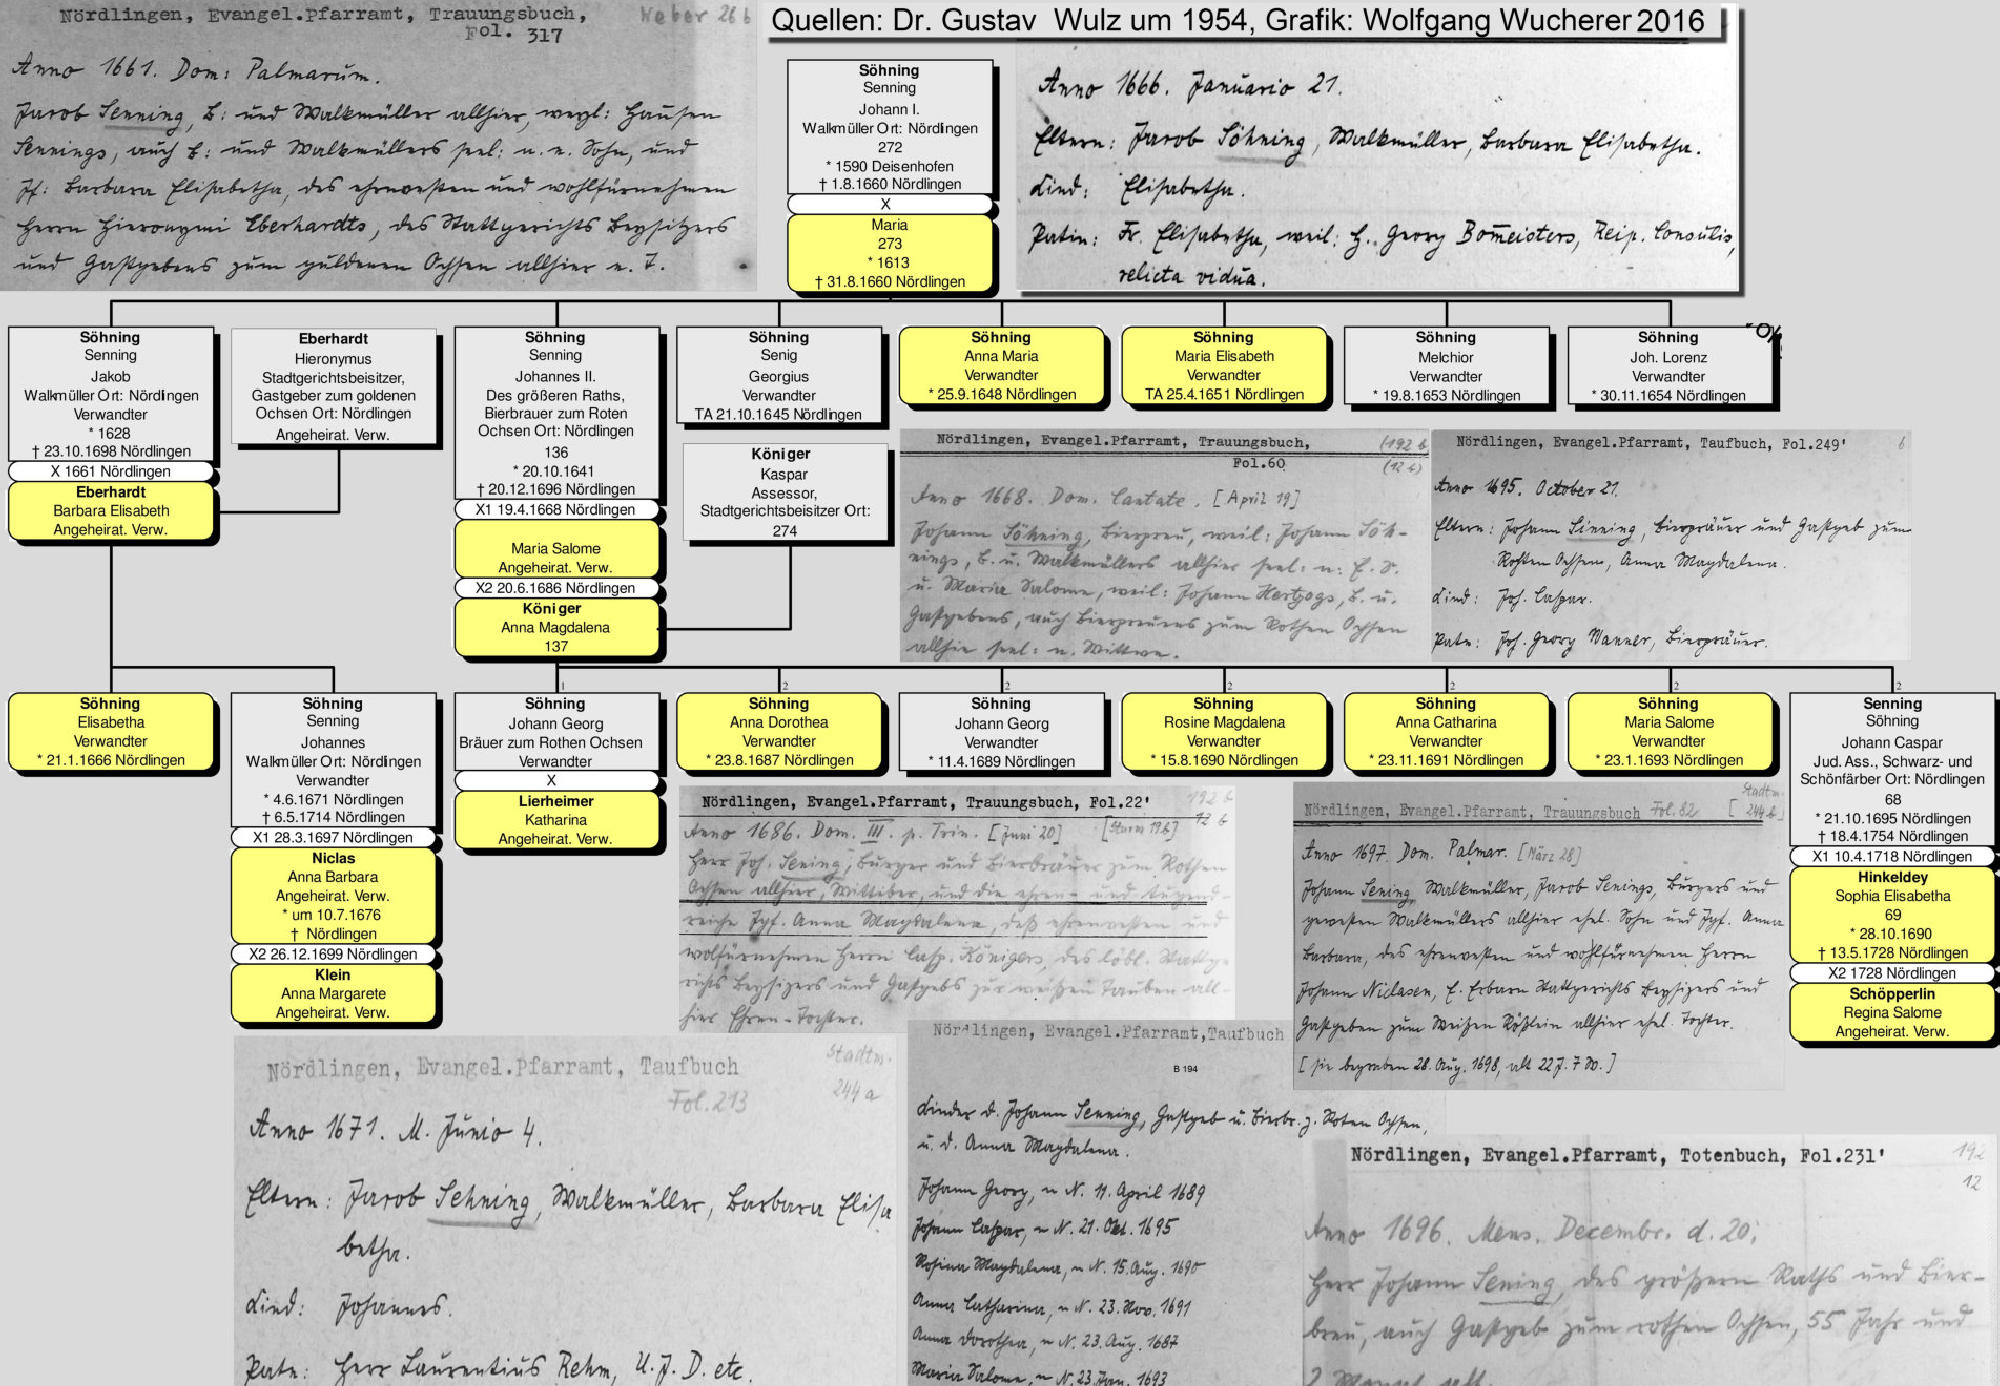 Nördlingen, Evangel.Pfarramt, Trauungsbuch,
Fol. 317
Weber 26 b
Anno 1661. Dom: Palmarum.
Jacob Senning, b: und Walkmüller allhier, weyl: Hansen
Sennings, auch b: und Walkmüllers seel: n. e. Sohn, und
Jf: Barbara Elisabetha, des ehrnvesten und wohlfürnehmen
Herrn Hieronymi Eberhardts, des Stattgerichts Beysitzers
und Gastgebens zum güldenen Ochsen allhier e. T.
Quellen: Dr. Gustav Wulz um 1954, Grafik: Wolfgang Wucherer 2016
Söhning
Senning
Johann I.
Walkmüller Ort: Nördlingen
272
* 1590 Deisenhofen
† 1.8.1660 Nördlingen
X
Maria
273
* 1613
† 31.8.1660 Nördlingen
Anno 1666. Januario 21.
Eltern: Jacob Söhning, Walkmüller, Barbara Elisabetha.
Kind: Elisabetha.
Patin: Fr. Elisabetha, weil: H. Georg Bomeisters, Reip. Consulis,
relicta vidua.
Söhning
Senning
Jakob
Walkmüller Ort: Nördingen
Verwandter
* 1628
† 23.10.1698 Nördlingen
X 1661 Nördlingen
Eberhardt
Barbara Elisabeth
Angeheirat. Verw.
Eberhardt
Hieronymus
Stadtgerichtsbeisitzer,
Gastgeber zum goldenen
Ochsen Ort: Nördlingen
Angeheirat. Verw.
Söhning
Senning
Johannes II.
Des größeren Raths,
Bierbrauer zum Roten
Ochsen Ort: Nördlingen
136
* 20.10.1641
† 20.12.1696 Nördlingen
X1 19.4.1668 Nördlingen
Maria Salome
Angeheirat. Verw.
X2 20.6.1686 Nördlingen
Königer
Anna Magdalena
137
Söhning
Senig
Georgius
Verwandter
TA 21.10.1645 Nördlingen
Königer
Kaspar
Assessor,
Stadtgerichtsbeisitzer Ort:
274
Söhning
Anna Maria
Verwandter
* 25.9.1648 Nördlingen
Söhning
Maria Elisabeth
Verwandter
TA 25.4.1651 Nördlingen
Söhning
Melchior
Verwandter
* 19.8.1653 Nördlingen
Söhning
Joh. Lorenz
Verwandter
* 30.11.1654 Nördlingen
Nördlingen, Evangel.Pfarramt, Trauungsbuch,
Fol.60
(192 b
(12 b)
Anno 1668. Dom. Cantate. [April 19]
Johann Söhning, Bierpreu, weil: Johann Söh-
nings, b. u. Walkmüllers allhier seel: n: E. S.
u. Maria Salome, weil: Johann Hertzogs, b. u.
Gastgebens, auch Bierpreuens zum Rothen Ochsen
allhie seel: n. Wittwe.
Nördlingen, Evangel.Pfarramt, Taufbuch, Fol.249'
Anno 1695. October 21.
Eltern: Johann Sinning, Bierpräuer und Gastgeb zum
Rohten Ochsen, Anna Magdalena.
Kind: Joh. Caspar.
Pate: Joh. Georg Wanner, Bierpräuer.
Söhning
Elisabetha
Verwandter
* 21.1.1666 Nördlingen
Söhning
Senning
Johannes
Walkmüller Ort: Nördlingen
Verwandter
* 4.6.1671 Nördlingen
† 6.5.1714 Nördlingen
X1 28.3.1697 Nördlingen
Niclas
Anna Barbara
Angeheirat. Verw.
* um 10.7.1676
† Nördlingen
X2 26.12.1699 Nördlingen
Klein
Anna Margarete
Angeheirat. Verw.
1
Söhning
Johann Georg
Bräuer zum Rothen Ochsen
Verwandter
X
Lierheimer
Katharina
Angeheirat. Verw.
2
Söhning
Anna Dorothea
Verwandter
* 23.8.1687 Nördlingen
2
Söhning
Johann Georg
Verwandter
* 11.4.1689 Nördlingen
2
Söhning
Rosine Magdalena
Verwandter
* 15.8.1690 Nördlingen
2
Söhning
Anna Catharina
Verwandter
* 23.11.1691 Nördlingen
2
Söhning
Maria Salome
Verwandter
* 23.1.1693 Nördlingen
2
Senning
Söhning
Johann Caspar
Jud. Ass., Schwarz- und
Schönfärber Ort: Nördlingen
68
* 21.10.1695 Nördlingen
† 18.4.1754 Nördlingen
X1 10.4.1718 Nördlingen
Hinkeldey
Sophia Elisabetha
69
* 28.10.1690
† 13.5.1728 Nördlingen
X2 1728 Nördlingen
Schöpperlin
Regina Salome
Angeheirat. Verw.
Nördlingen, Evangel.Pfarramt, Trauungsbuch, Fol.22'
192 b
12 b
Anno 1686. Dom. III. p. Trin. [Juni 20] [Sturm 196]
Herr Joh. Sening, Burger und Bierbräuer zum Rothen
Ochsen allhier, Wittiber, und die ehren- und tugend-
reiche Jgf. Anna Magdalena, deß ehrenvesten und
wolfürnehmen Herrn Casp. Königers, des löbl. Stattge-
richts Beysizers und Gastgebs zur weißen Tauben all-
hier Ehren-Tochter.
Nördlingen, Evangel.Pfarramt, Trauungsbuch Fol. 82
Stadtm.
[ 244 b ]
Anno 1697. Dom. Palmar. [März 28]
Johann Sening, Walkmüller, Jacob Senings, Burgers und
gewesten Walkmüllers allhier ehel. Sohn und Jgf. Anna
Barbara, des ehrenvesten und wohlfürnehmen Herrn
Johann Niclasen, E. Erbarn Stattgerichts Beysizers und
Gastgeben zum Weißen Rößlein allhier ehel. Tochter.
[ sie begraben 28. Aug. 1698, alt 22 J. 7 Wo. ]
Nördlingen, Evangel.Pfarramt, Taufbuch
Fol. 213
Stadtm.
244 a
Anno 1671. M. Junio 4.
Eltern: Jacob Sehning, Walkmüller, Barbara Elisa
betha.
Kind: Johannes.
Pate: Herr Laurentius Rehm, U. J. D. etc.
Nördlingen, Evangel.Pfarramt,Taufbuch
B 194
Kinder d. Johann Senning, Gastgeb u. Bierbr. z. Roten Ochsen,
u. d. Anna Magdalena.
Johann Georg, ~ N. 11. April 1689
Johann Caspar, ~ N. 21. Okt. 1695
Rosina Magdalena, ~ N. 15. Aug. 1690
Anna Catharina, ~ N. 23. Nov. 1691
Anna Dorothea, ~ N. 23. Aug. 1687
Maria Salome, ~ N. 23. Jan. 1693
Nördlingen, Evangel.Pfarramt, Totenbuch, Fol.231'
192
12
Anno 1696. Mens. Decembr. d. 20.
Herr Johann Sening, des größern Raths und Bier-
breu, auch Gastgeb zum rothen Ochsen, 55 Jahr und